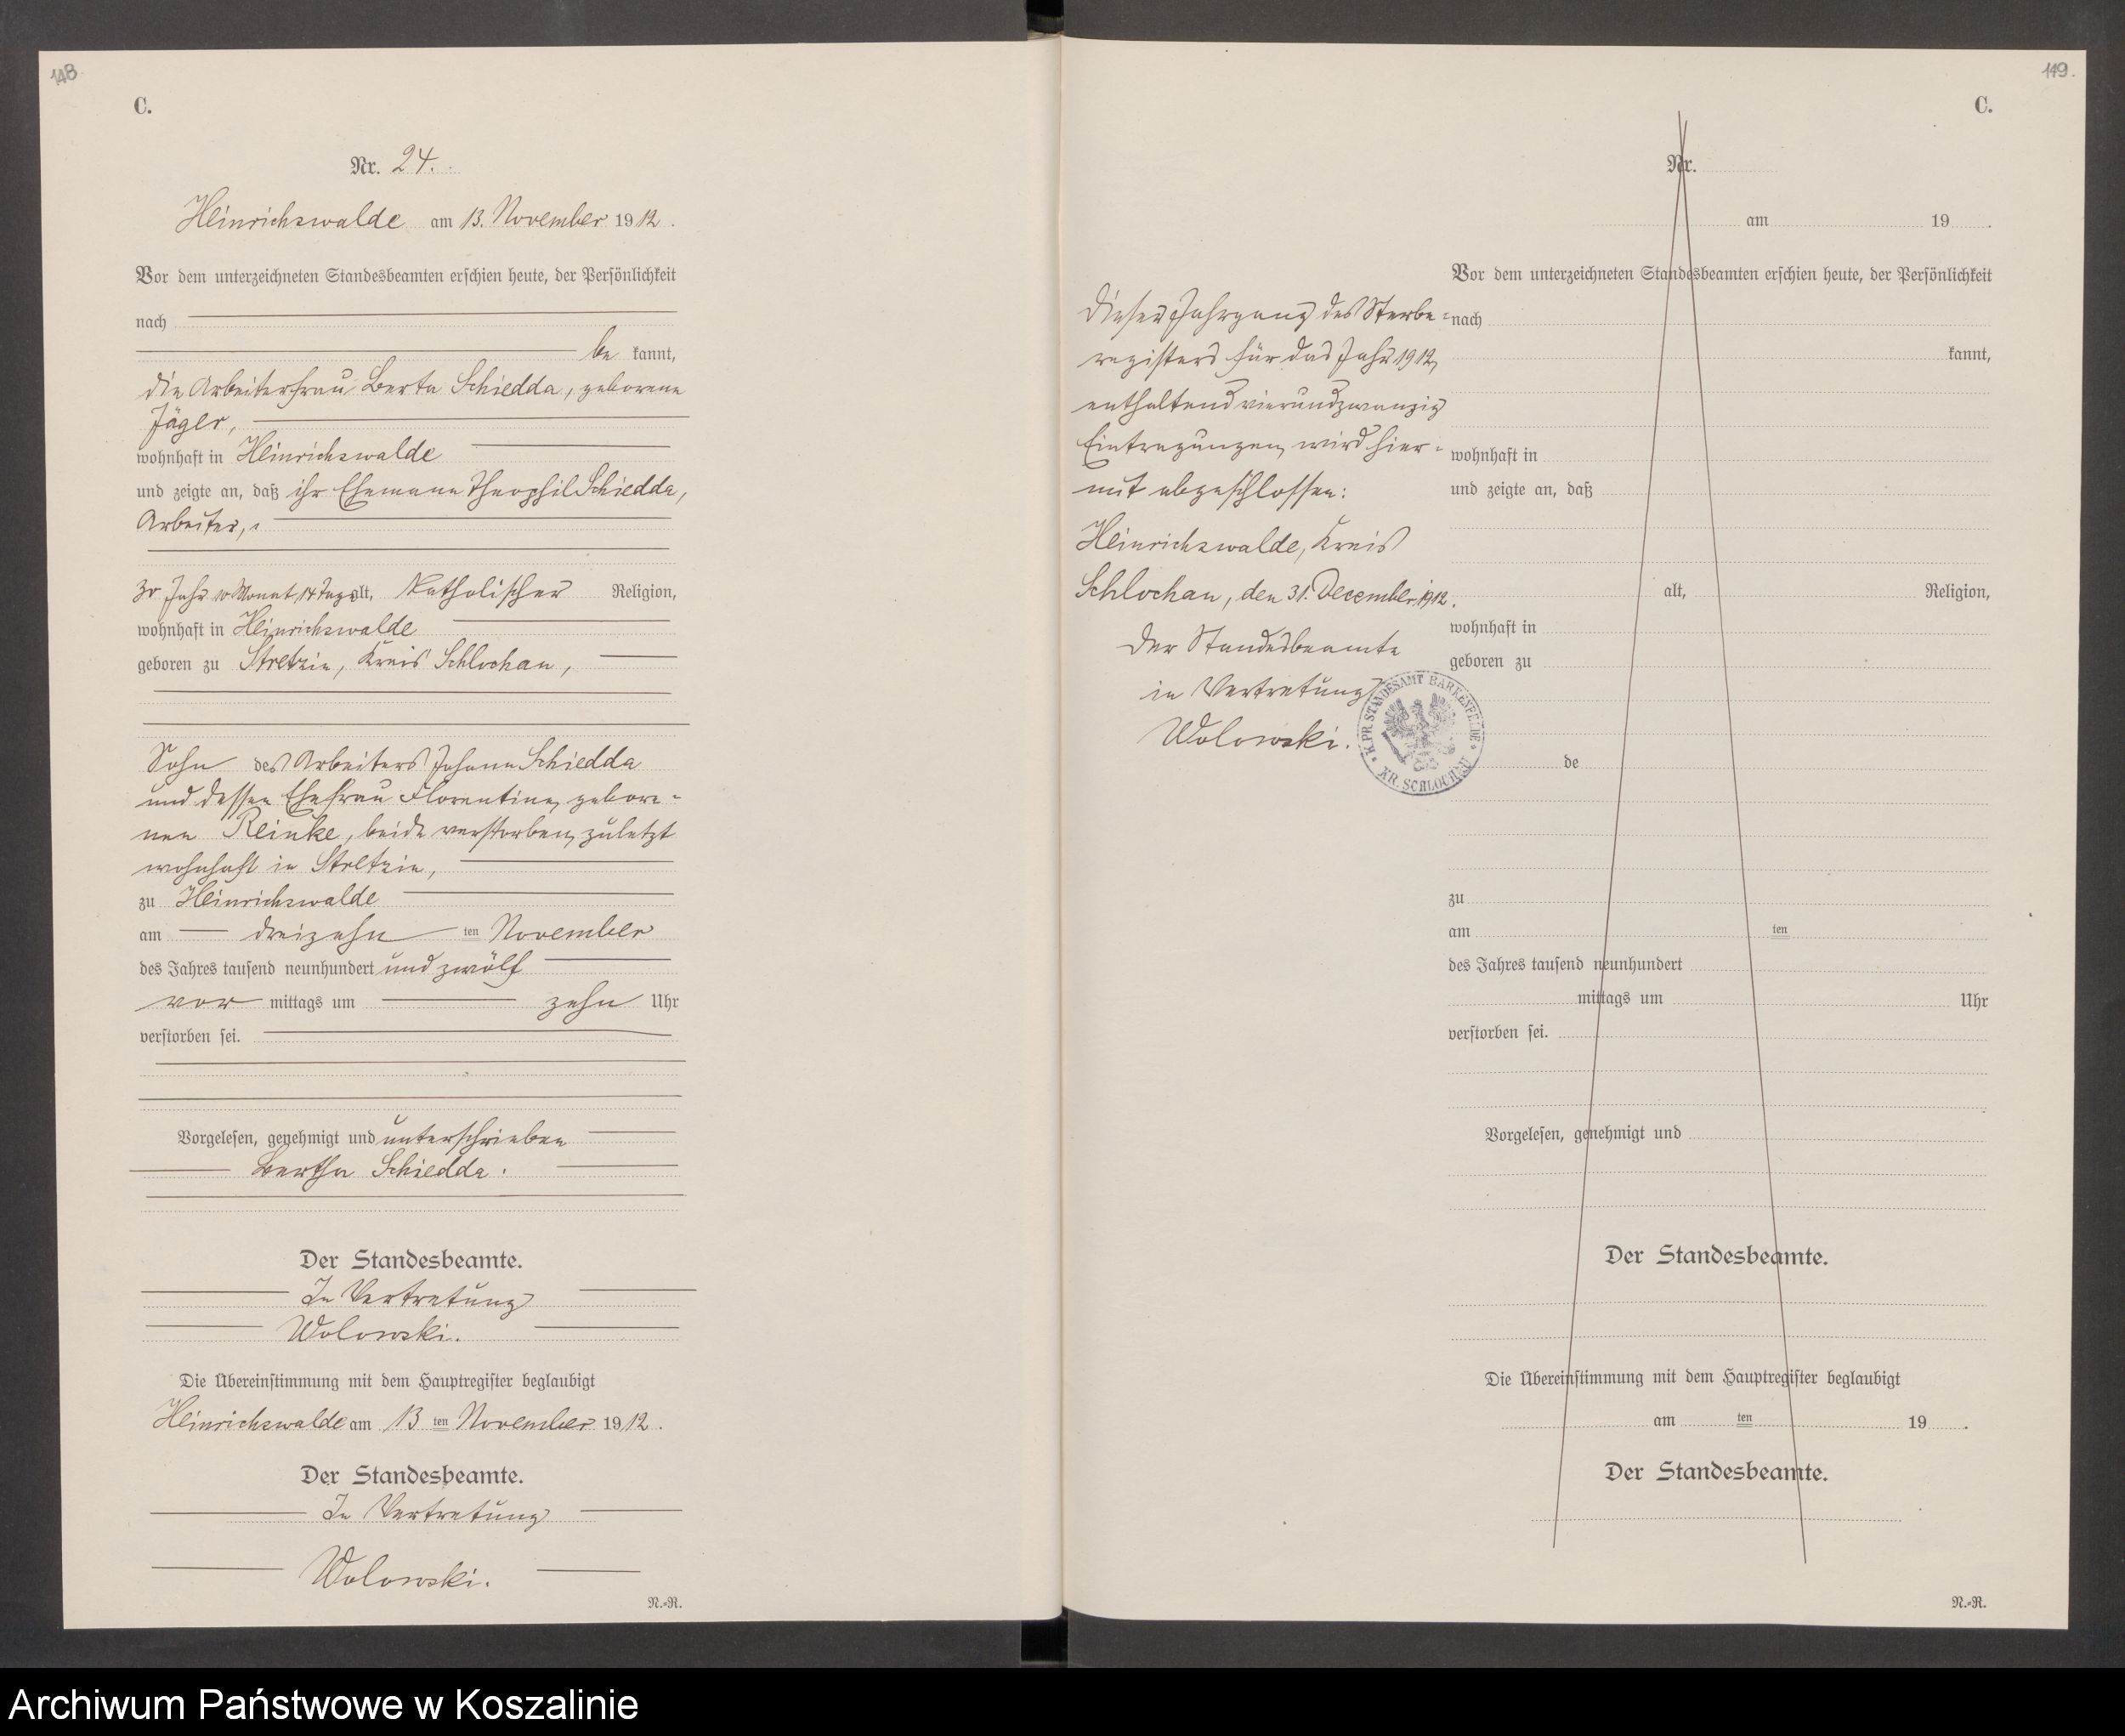 148
C.
Nr. 24.
Heinrichswalde am 13. November 1912.
Vor dem unterzeichneten Standesbeamten erschien heute, der Persönlichkeit
nach
be kannt,
die Arbeiterfrau Berta Schiedda, geborene
Jäger,
wohnhaft in Heinrichswalde
und zeigte an, daß ihr Ehemann Theophil Schiedda,
Arbeiter,
Jahr 10 Monat 14 Tage alt, Katholischer Religion,
wohnhaft in Heinrichswalde
geboren zu Stretzin, Kreis Schlochau,
Sohn des Arbeiters Johann Schiedda
und dessen Ehefrau Florentine, gebore-
nen Reinke, beide verstorben, zuletzt
wohnhaft in Stretzin,
zu Heinrichswalde
am dreizehn ten November
des Jahres tausend neunhundert und zwölf
vor mittags um zehn Uhr
verstorben sei.
Vorgelesen, genehmigt und unterschrieben
Bertha Schiedda.
Der Standesbeamte.
In Vertretung
Wolowski.
Die Übereinstimmung mit dem Hauptregister beglaubigt
Heinrichswalde am 13 ten November 1912.
Der Standesbeamte.
In Vertretung
Wolowski.
N.-R.
149.
C.
Nr.
am 19 .
Vor dem unterzeichneten Standesbeamten erschien heute, der Persönlichkeit
nach
kannt,
wohnhaft in
und zeigte an, daß
alt, Religion,
wohnhaft in
geboren zu
de
zu
am ten
des Jahres tausend neunhundert
mittags um Uhr
verstorben sei.
Vorgelesen, genehmigt und
Der Standesbeamte.
Die Übereinstimmung mit dem Hauptregister beglaubigt
am ten 19 .
Der Standesbeamte.
N.-R.
Dieser Jahrgang des Sterbe-
registers für das Jahr 1912,
enthaltend vierundzwanzig
Eintragungen, wird hier-
mit abgeschlossen:
Heinrichswalde, Kreis
Schlochau, den 31. December 1912.
Der Standesbeamte
in Vertretung
Wolowski.
K. PR. STANDESAMT BARKENFELDE
KR. SCHLOCHAU
Archiwum Państwowe w Koszalinie